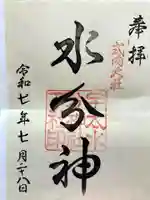 奉拝
式内大社
水分神
令和七年七月二十八日